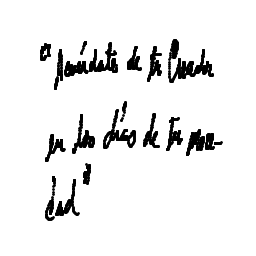 "Acuérdate de tu Creador
en los días de tu moce-
dad"